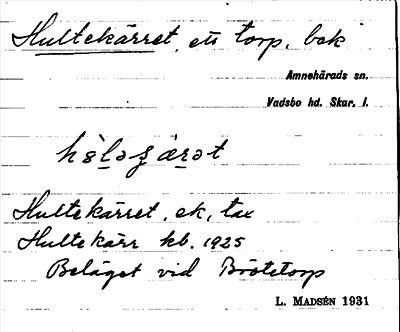 Hultekärret, ett torp, bok
Amnehärads sn.
Vadsbo hd. Skar. l.
Hultekärret, ek, tax
Hultekärr kb. 1925
Beläget vid Brötetorp
L. MADSÉN 1931